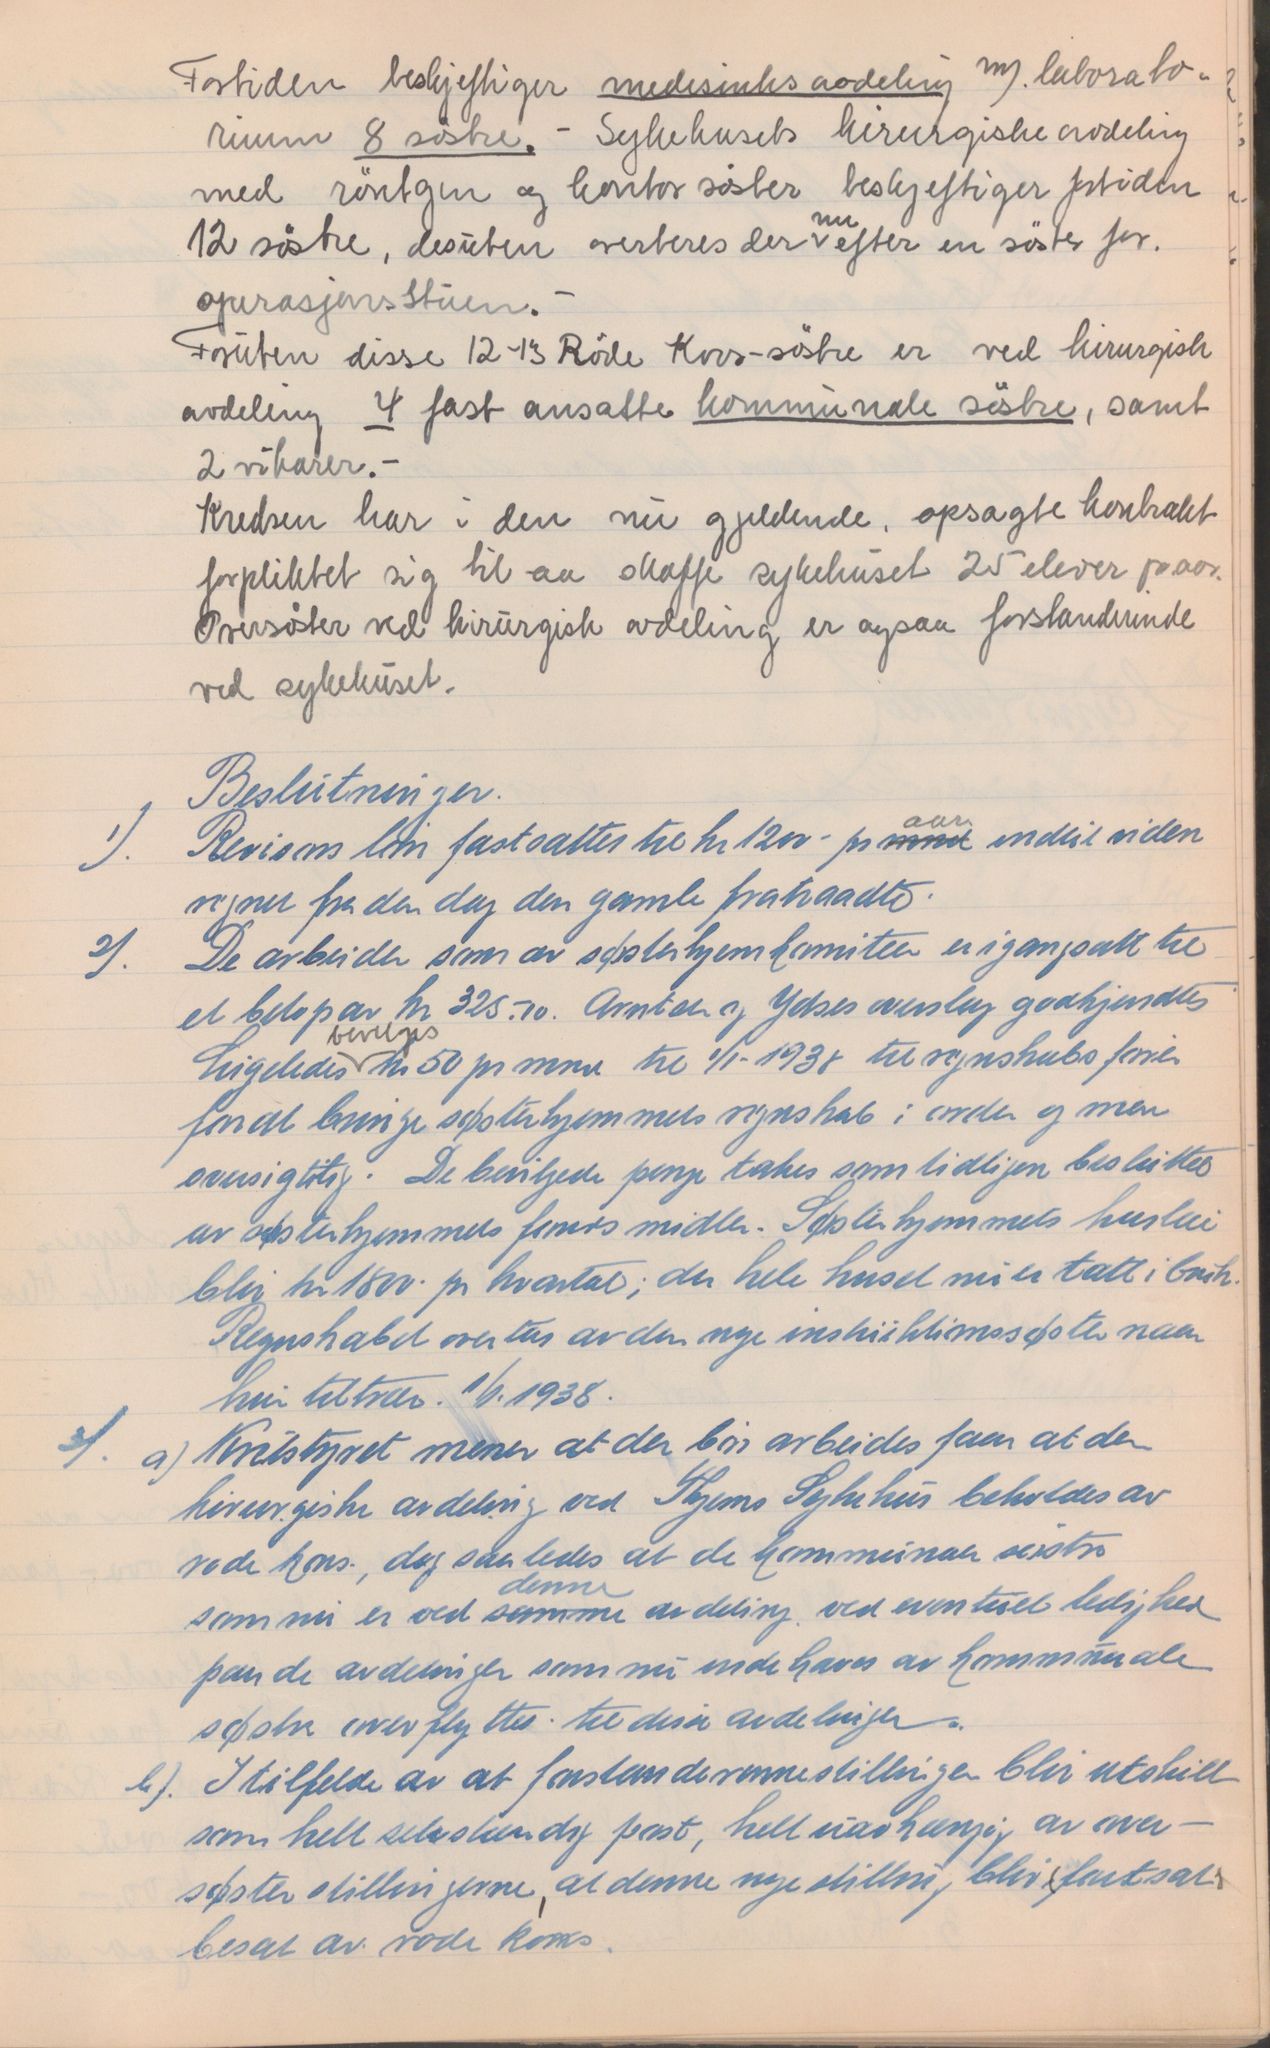 Fortiden beskjeftiger medisinks avdeling m/. laborato-
rium 8 söstre. - Sykehusets kirurgiske avdeling
med röntgen og kontor söster beskjeftiger fortiden
12 söstre, desuten averteres der nu efter en söster for.
operasjonsstuen. -
Foruten disse 12-13 Röde Kors-söstre er ved kirurgisk
avdeling 4 fast ansatte kommunale söstre, samt
2 vikarer. -
Kredsen har i den nu gjeldende, opsagte kontrakt
forpliktet sig til aa skaffe sykehuset 25 elever pr aar.
Oversöster ved kirurgisk avdeling er ogsaa forstanderinde
ved sykehuset.
Beslutninger.
1). Revisors lön fastsattes til kr 1200 - pr mnd aar indtil viden
regnet fra den dag den gamle fratraadte.
2). De arbeider som av søsterhjemkomiteen er igangsatt til
et beløp av kr 325.70. Arntzen og Ydses overslag godkjendtes
Ligeledes bevilges kr 50 pr mnd til 1/1-1938 til regnskabsfører
for at bringe søsterhjemmets regnskab i orden og mer
oversigtlig. De bevilgede penge takes som tidligere besluttet
av søsterhjemmets fonds midler. Søsterhjemmets husleie
blir kr 1800. pr kvartal; da hele huset nu er tatt i bruk.
Regnskabet overtas av den nye instruktionssøster naar
hun tiltræder. 1/1. 1938.
3). a) Kretsstyret mener at der bör arbeides for at den
kirurgiske avdeling ved Skjems Sykehus beholdes av
røde kors., dog saaledes at de kommunale söstre
som nu er ved samme denne avdeling. ved eventuel ledighed
paa de avdelinger som nu indehaves av kommunale
søstre overflyttes. til disse avdelinger.
b). I tilfelde av at forstanderinnestillingen blir utskilt
som helt selvstændig post, helt uavhængig av over-
søster stillingerne, at denne nye stilling blir fortsat
besat av røde kors.